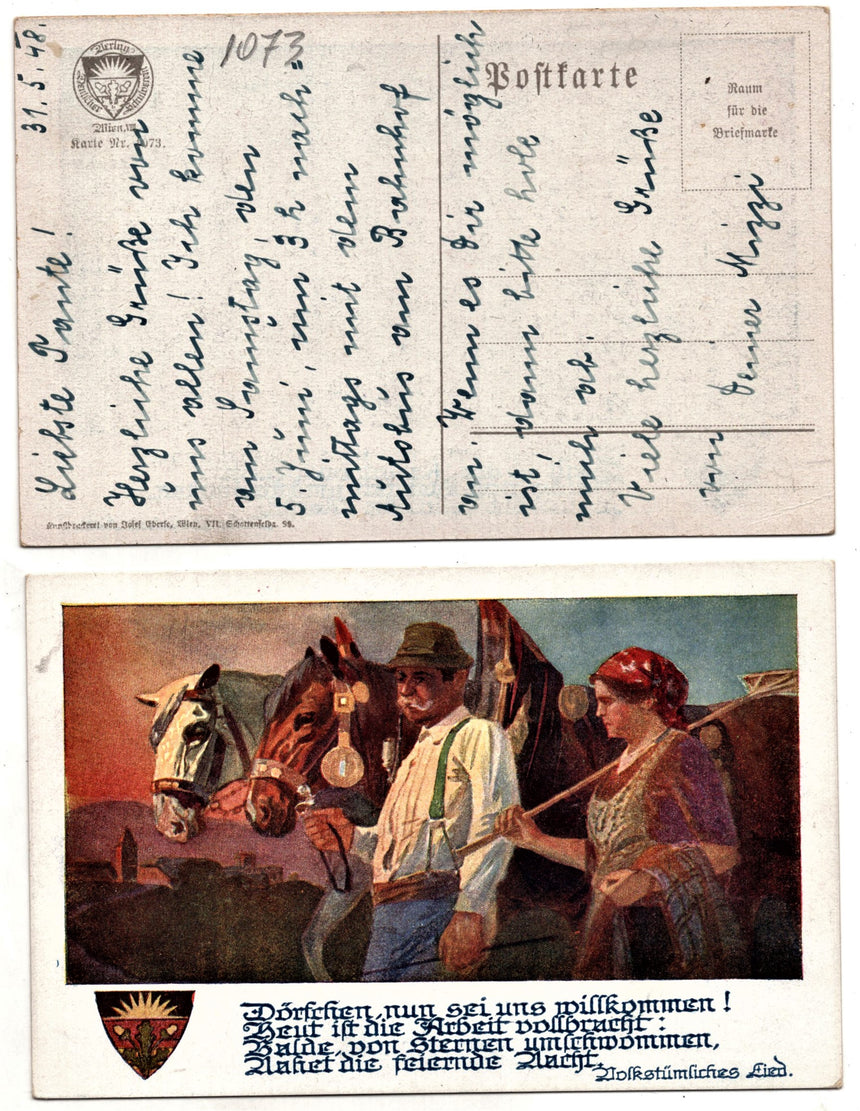 31.5.48.
Verlag
Deutscher Schulverein
Wien, VIII.
Karte Nr. 1073.
1073
Liebste Tante!
Herzliche Grüße von
uns allen! Ich komme
am Samstag, den
5. Juni, um 3 h nach=
mittags mit dem
Autobus am Bahnhof
an. Wenn es Dir möglich
ist, dann bitte hole
mich ab.
Viele herzliche Grüße
von Deiner Mizzi
Postkarte
Raum
für die
Briefmarke
Kunstdruckerei von Josef Eberle, Wien, VII. Schottenfeldg. 38.
Dörfchen, nun sei uns willkommen!
Heut ist die Arbeit vollbracht:
Balde, von Sternen umschwommen,
Nahet die feiernde Nacht.
Volkstümliches Lied.